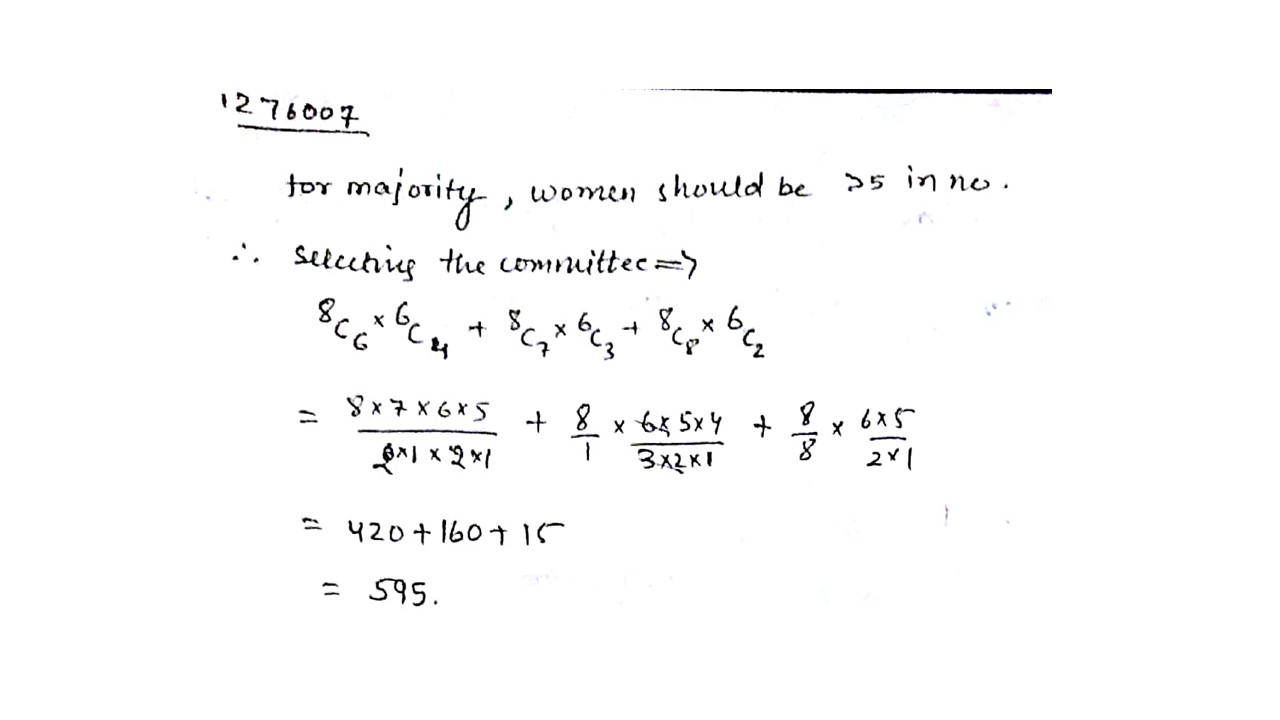 1276007
for majority, women should be >5 in no.
∴ selecting the committee =>
⁸C₆ × ⁶C₄ + ⁸C₇ × ⁶C₃ + ⁸C₈ × ⁶C₂
= 8×7×6×5 / 2×1×2×1 + 8/1 × 6×5×4 / 3×2×1 + 8/8 × 6×5 / 2×1
= 420 + 160 + 15
= 595.